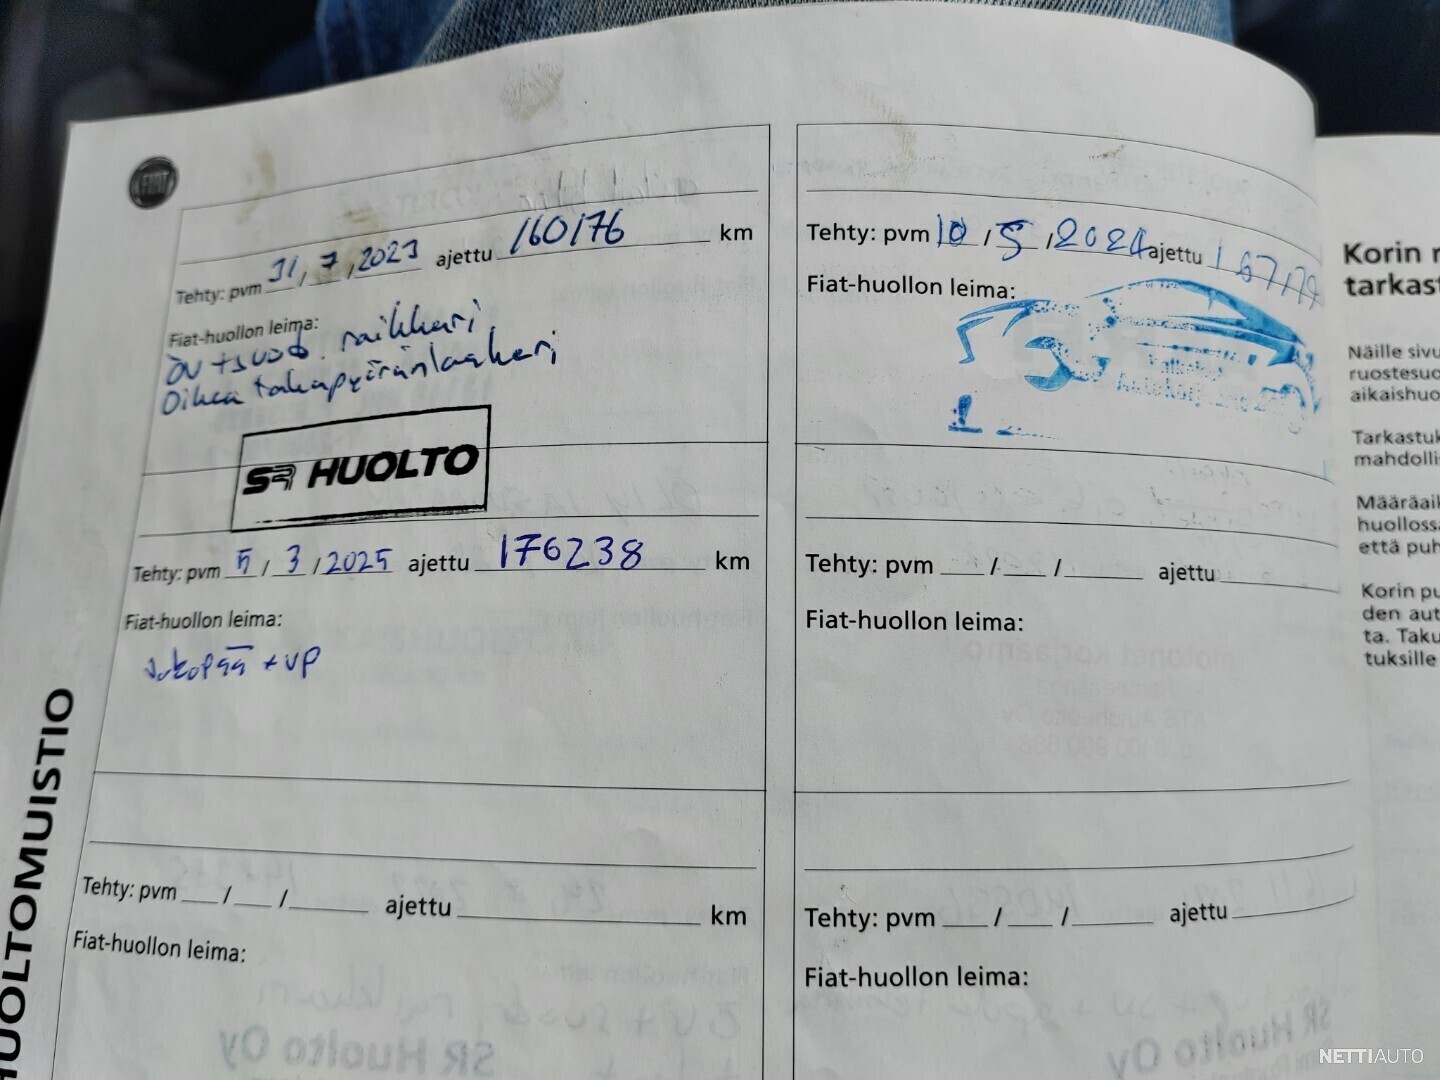 FIAT
Tehty: pvm 31, 7, 2023 ajettu 160176 km
Fiat-huollon leima:
öv + suod. raikkari
Oikea takapyöränlaakeri
SR HUOLTO
Tehty: pvm 5 / 3 / 2025 ajettu 176238 km
Fiat-huollon leima:
Jakopää + vp
Tehty: pvm / / ajettu km
Fiat-huollon leima:
Tehty: pvm 10 / 5 / 2024 ajettu
Fiat-huollon leima:
Tehty: pvm / / ajettu
Fiat-huollon leima:
Tehty: pvm / / ajettu
Fiat-huollon leima:
HUOLTOMUISTIO
Korin r
tarkast
Näille sivu
ruostesuo
aikaishuo
Tarkastuk
mahdollis
Määräaik
huollossa
että puh
Korin pu
den aut
ta. Taku
tuksille
SR Huolto Oy
SR Huolto Oy
NETTIAUTO